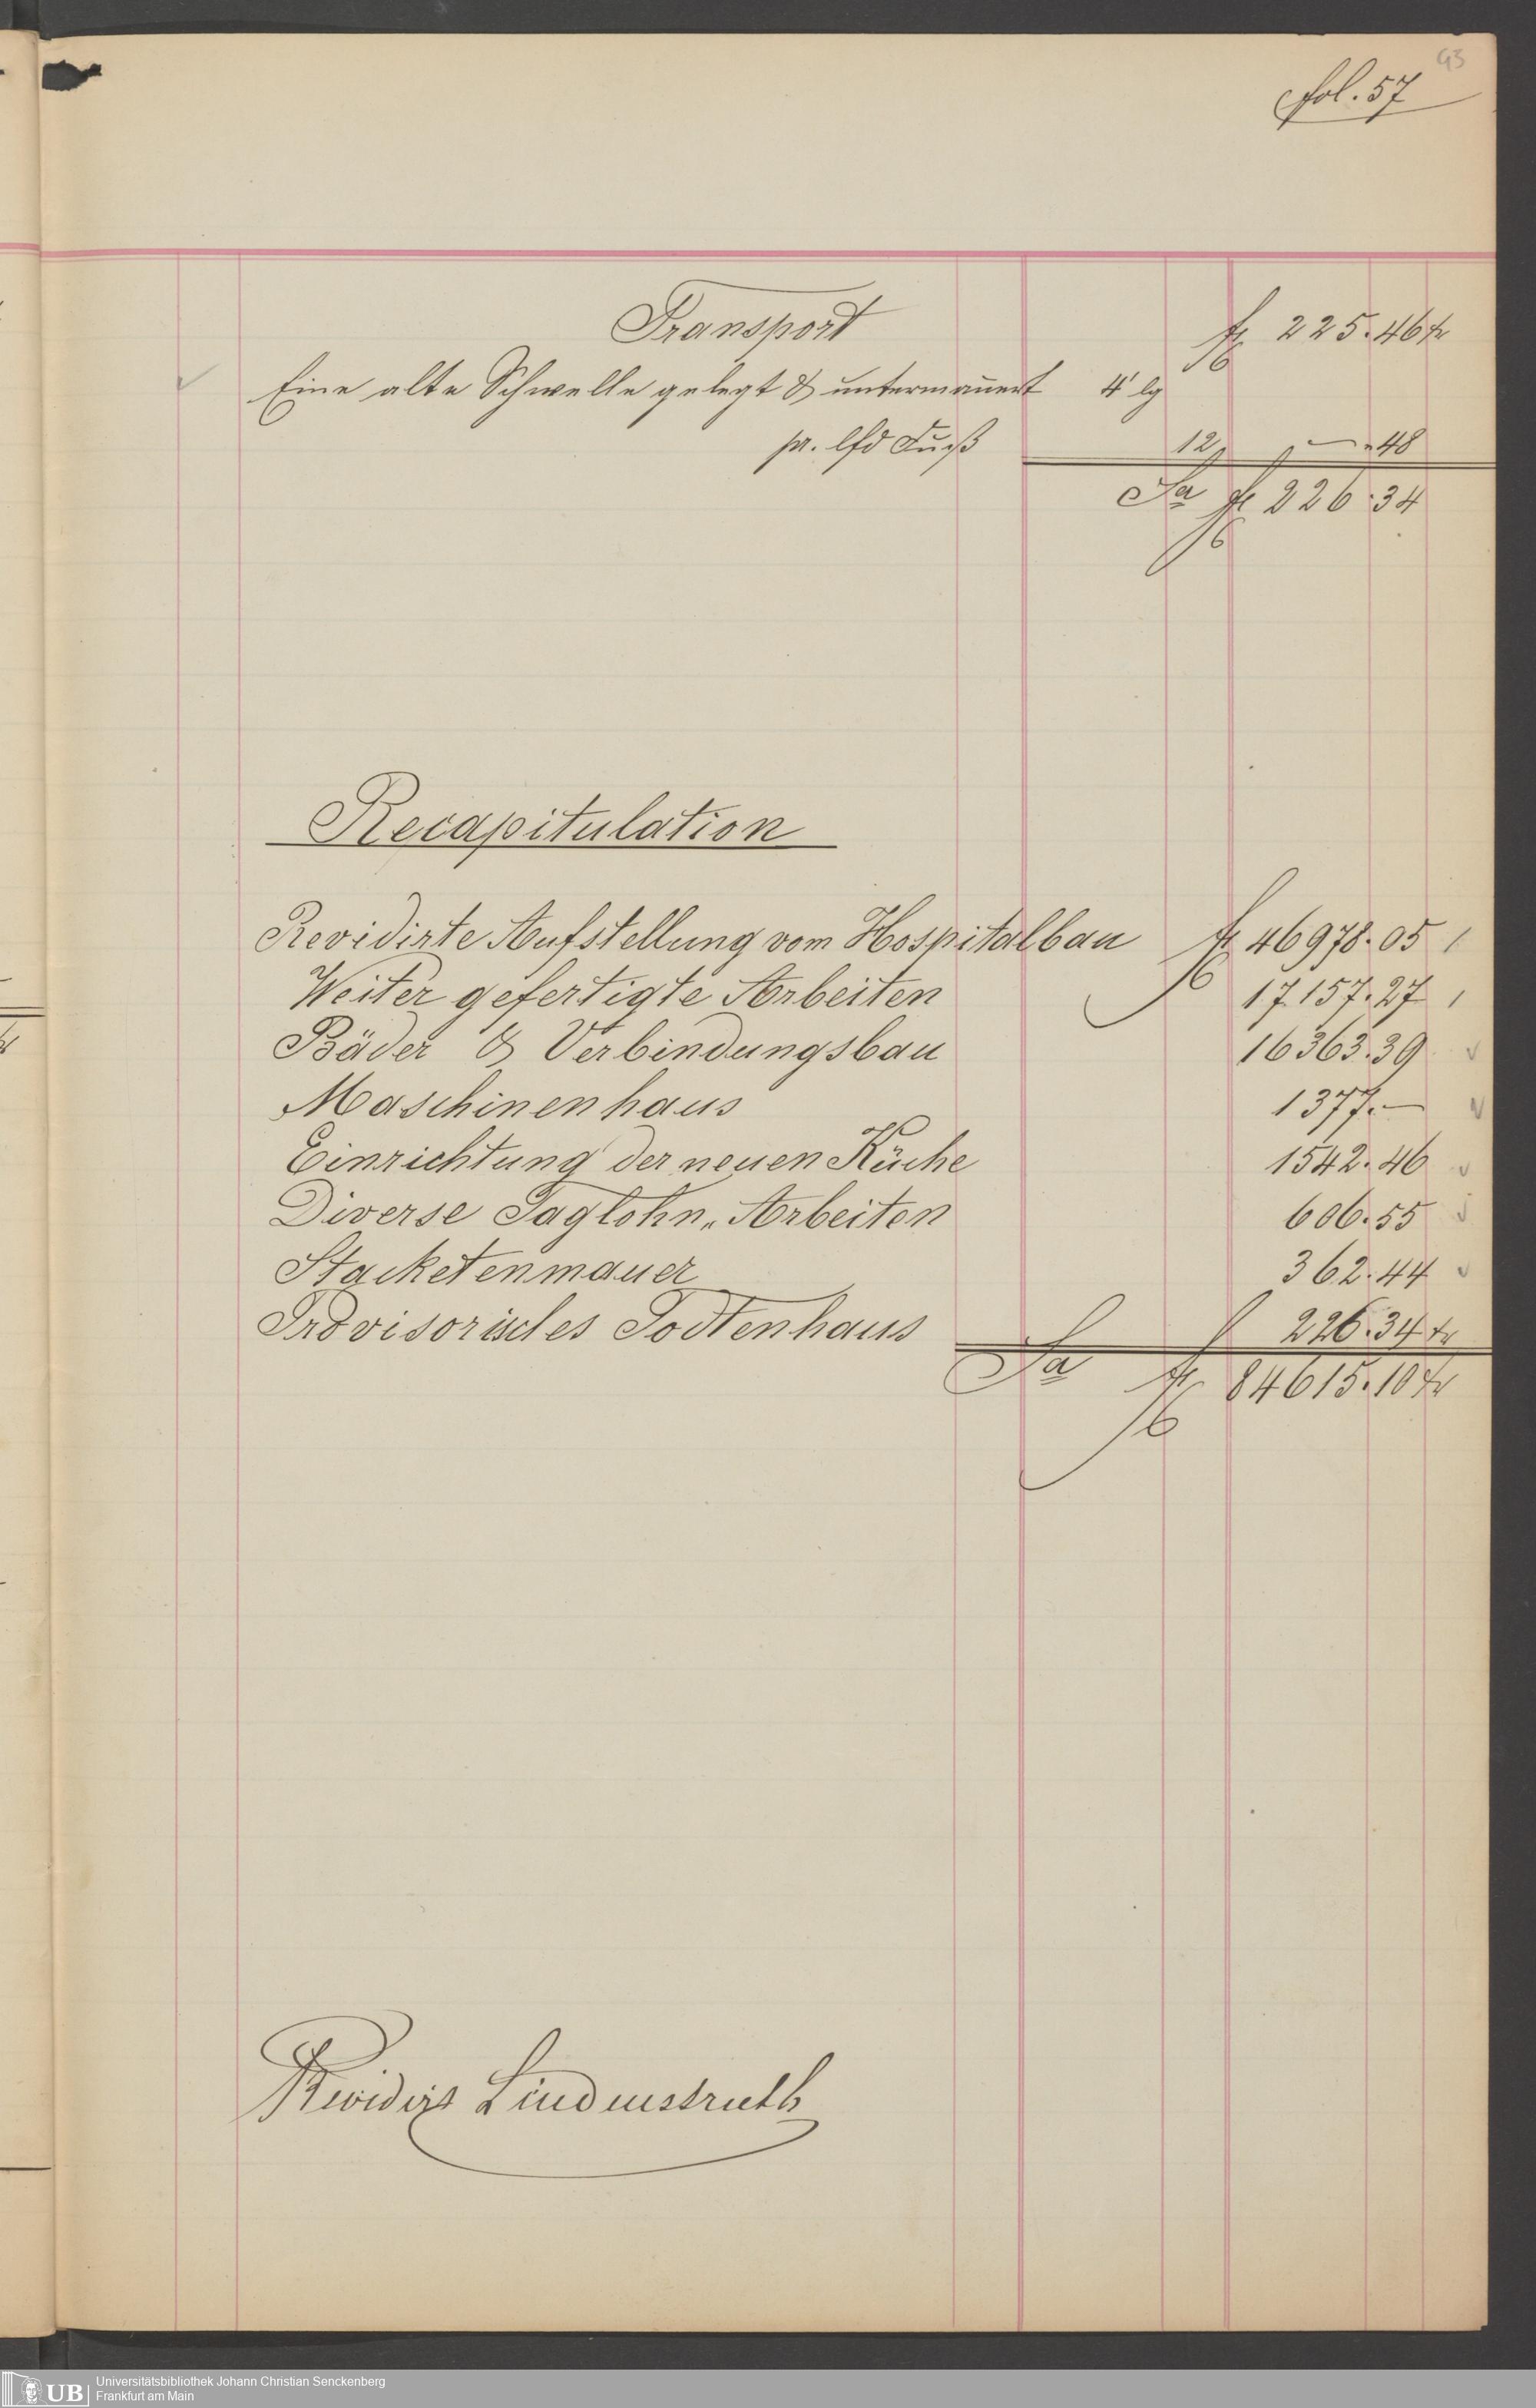 93
fol. 57
Transport fl 225. 46 kr
Eine alte Schwelle gelegt & untermauert 4' lg
pr. lfd Fuß 12 — " 48
Sa fl 226. 34
Recapitulation
Revidirte Aufstellung vom Hospitalbau fl 46978. 05
Weiter gefertigte Arbeiten 17157. 27
Bäder & Verbindungsbau 16363. 39
Maschinenhaus 1377. —
Einrichtung der neuen Küche 1542. 46
Diverse Taglohn„ Arbeiten 606. 55
Stacketenmauer 362. 44
Provisorisches Todtenhaus 226. 34 kr
Sa fl 84615. 10 kr
Revidirt Lindenstruth
UB Universitätsbibliothek Johann Christian Senckenberg
Frankfurt am Main